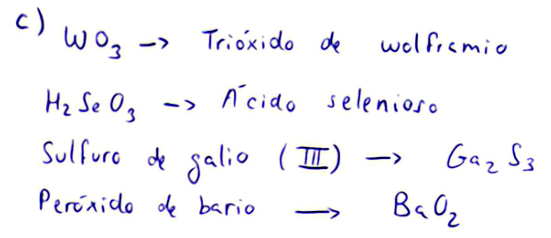 c) WO₃ → Trióxido de wolframio
H₂SeO₃ → Ácido selenioso
Sulfuro de galio (III) → Ga₂S₃
Peróxido de bario → BaO₂